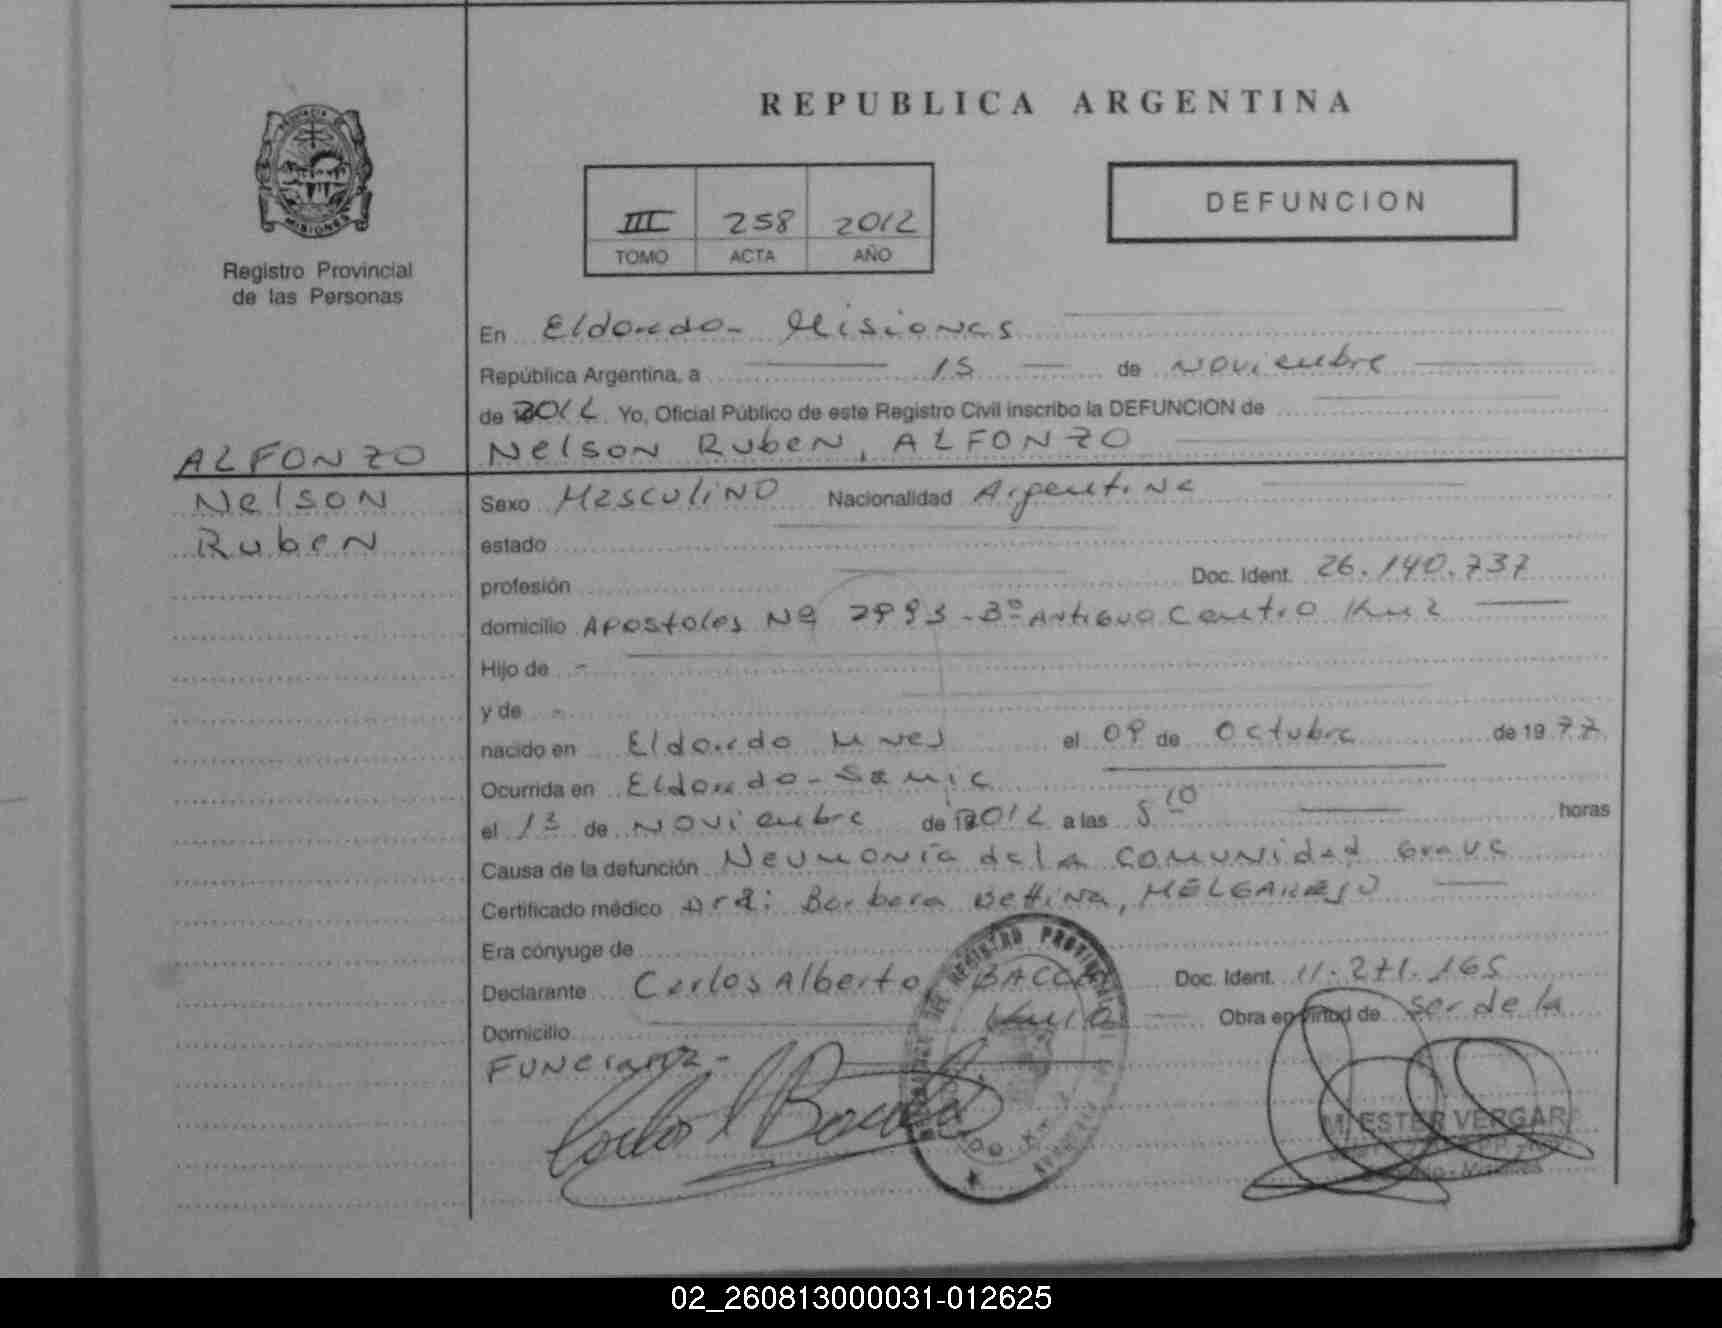 REPUBLICA ARGENTINA
III 258 2012
TOMO ACTA AÑO
DEFUNCION
PROVINCIA
MISIONES
Registro Provincial
de las Personas
ALFONZO
Nelson
Ruben
En Eldorado - Misiones
República Argentina, a 15 de Noviembre
de 2012 Yo, Oficial Público de este Registro Civil inscribo la DEFUNCION de
Nelson Ruben, ALFONZO
Sexo Masculino Nacionalidad Argentina
estado
profesión Doc. Ident. 26.140.737
domicilio Apostoles Nº 2993 - Bº Antiguo Centro Km 2
Hijo de -
y de -
nacido en Eldorado Mnes el 09 de Octubre de 1977
Ocurrida en Eldorado - Samic
el 13 de Noviembre de 2012 a las 5 10 horas
Causa de la defunción Neumonía de la comunidad Grave
Certificado médico Dra: Barbara Bettina, MELGAREJO
Era cónyuge de
Declarante Carlos Alberto BACC Doc. Ident. 11.271.165
Domicilio Km 10 Obra en virtud de ser de la
Funeraria -
REGISTRO PROVINCIAL
M. ESTER VERGARA
02_260813000031-012625